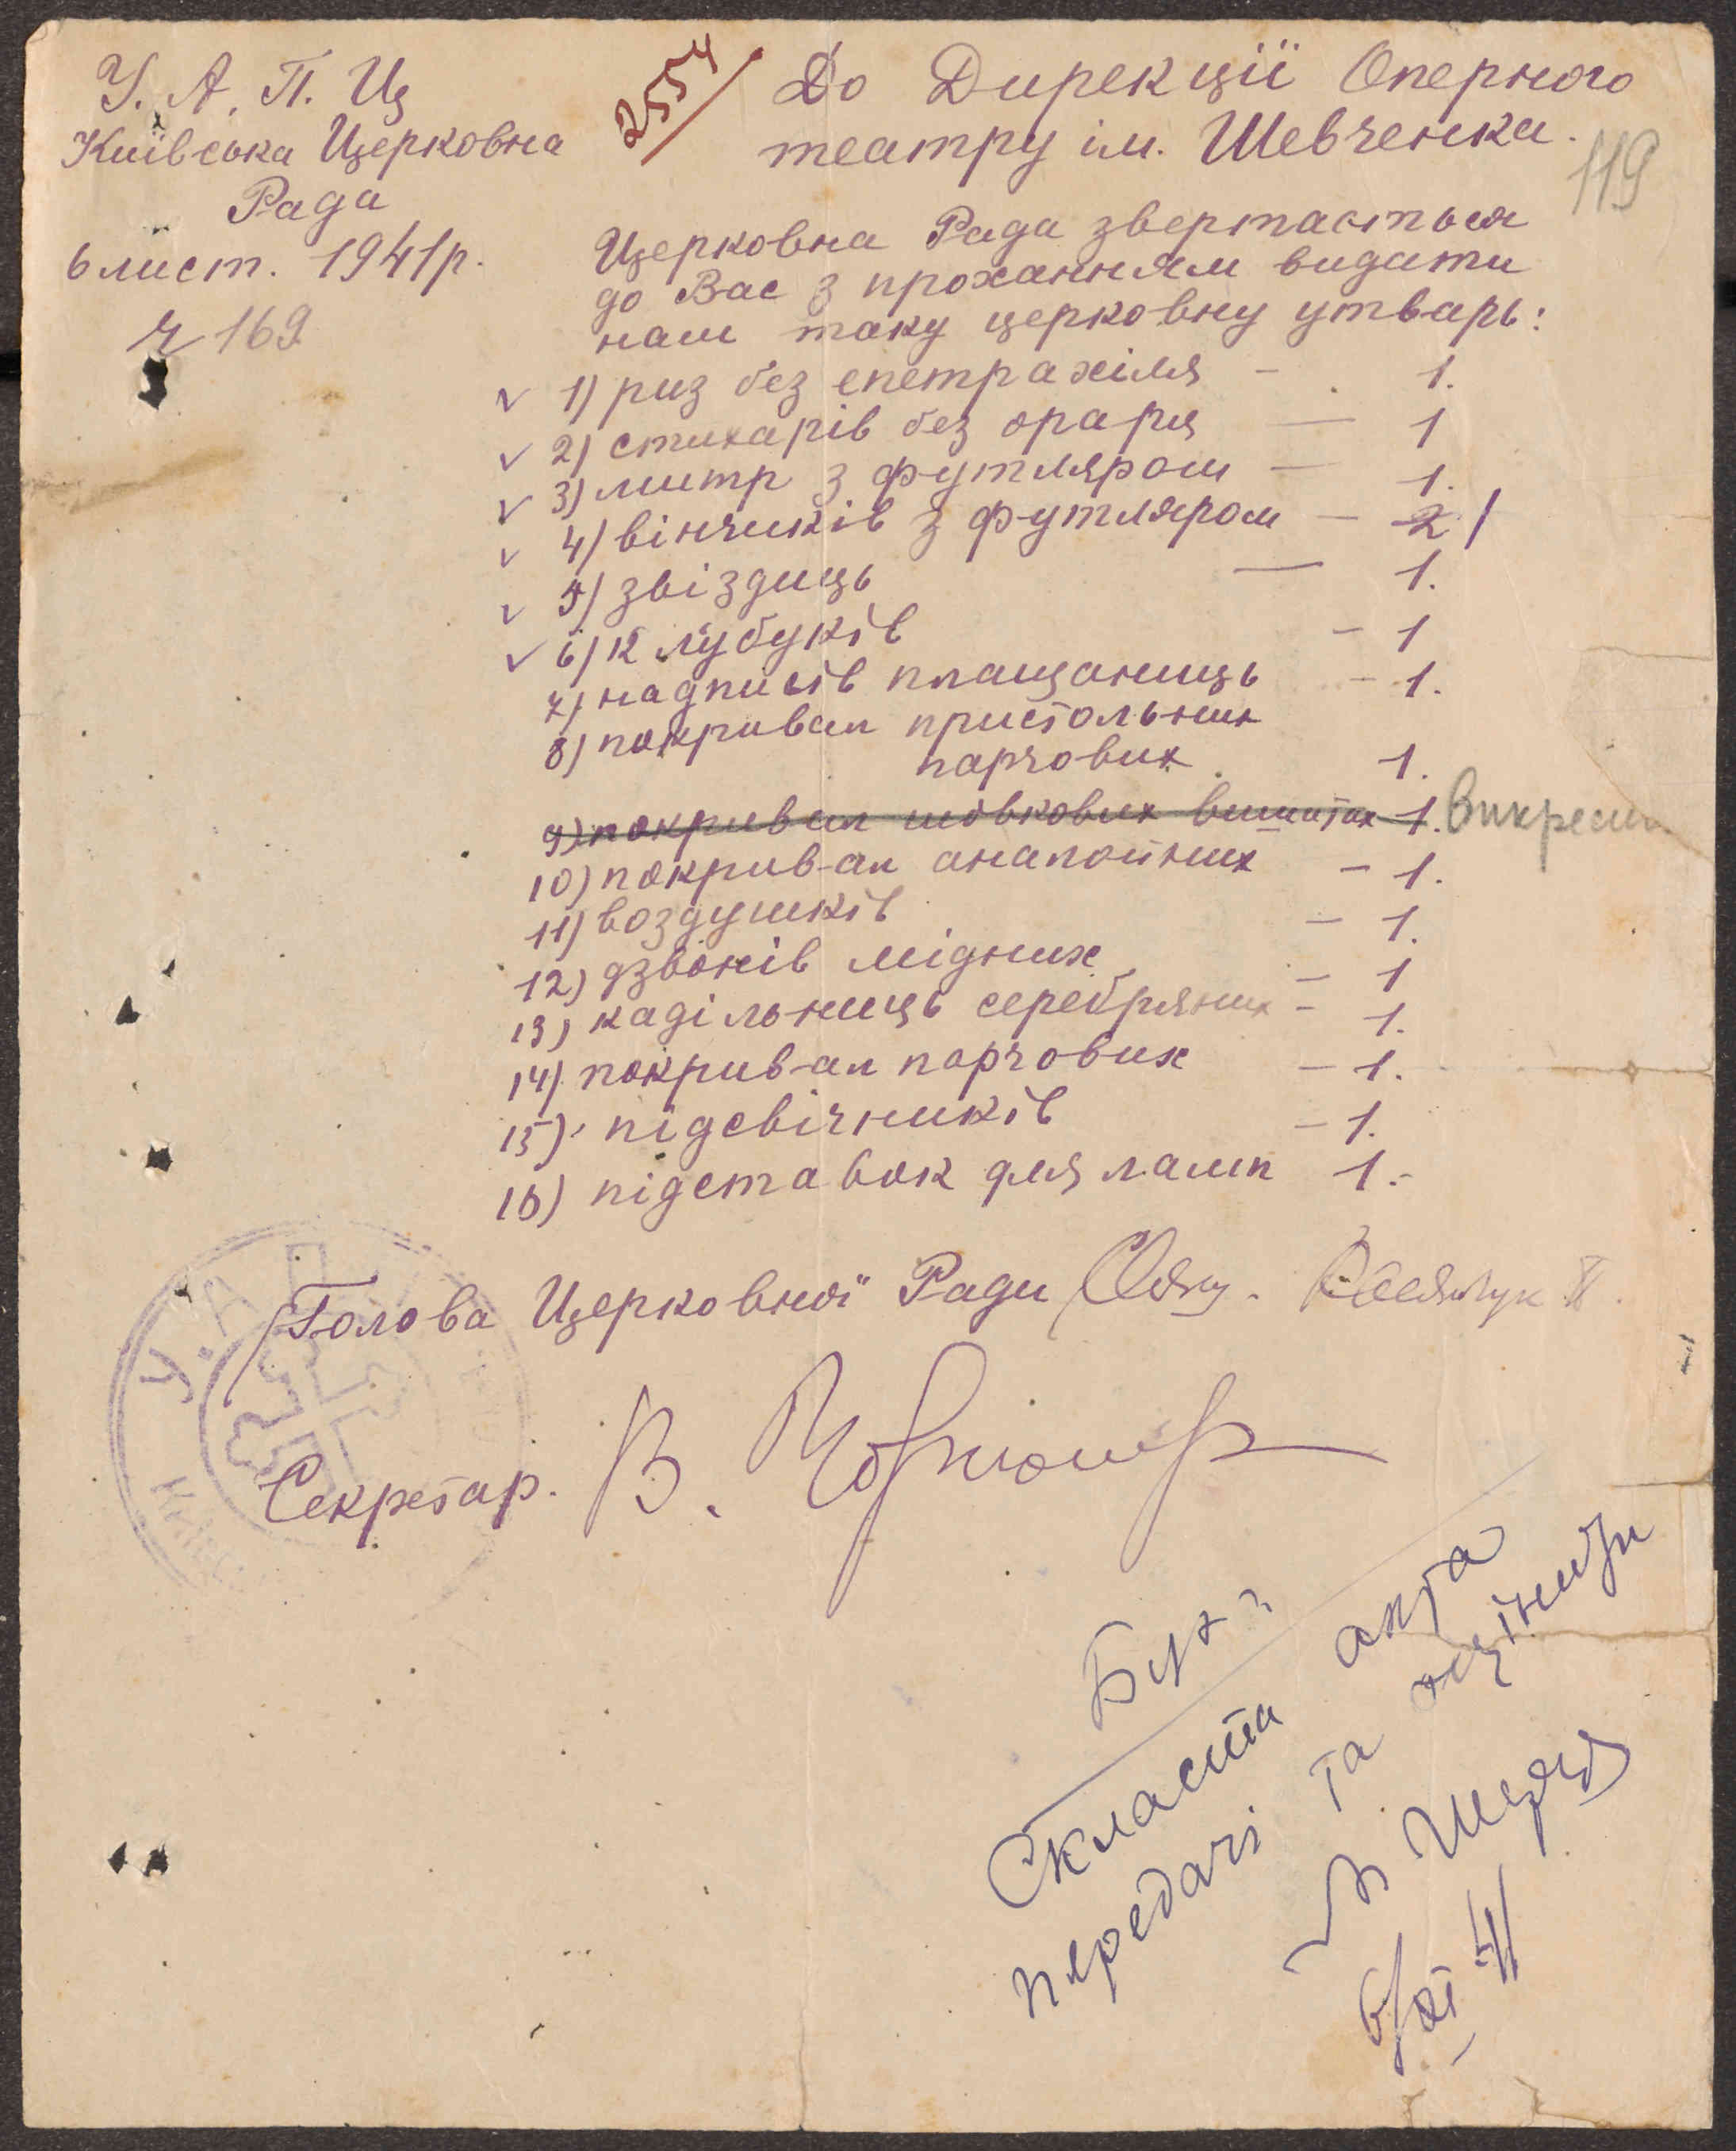 У. А. П. Ц
Київська Церковна
Рада
6 лист. 1941р.
ч 169
2554
До Дирекції Оперного
театру ім. Шевченка.
119
Церковна Рада звертається
до Вас з проханням видати
нам таку церковну утварь:
1) риз без епетрахіля - 1.
2) стихарів без ораря — 1
3) митр з футляром — 1.
4) вінчиків з футляром — 2 1
5) звіздиць — 1.
6) клубуків - 1
7) надписів плащаниць - 1.
8) покривал пристольних
парчовых 1.
9) покривал шовкових вишитих 1. Викресл.
10) покривал аналойних - 1.
11) воздушків - 1.
12) дзвонів мідних - 1
13) кадільниць серебряних - 1.
14) покривал парчових - 1.
15) підсвічників - 1.
16) підставок для ламп 1.-
Голова Церковної Ради
Секретар. В.
У. А. П
Бух
Скласти акта
передачі та оцінити
6/XI 41